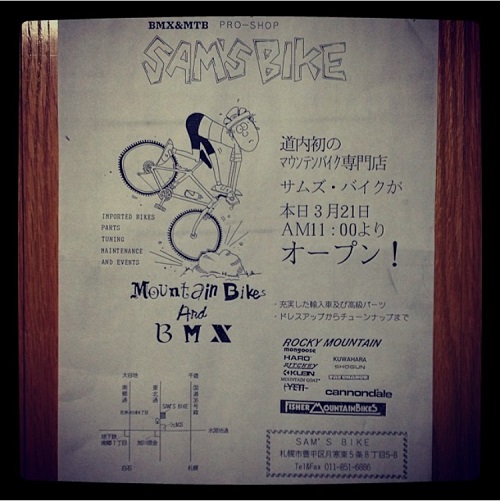 BMX&MTB PRO-SHOP
SAM'S BIKE
道内初の
マウンテンバイク専門店
サムズ・バイクが
本日3月21日
AM11:00より
オープン!
IMPORTED BIKES
PARTS
TUNING
MAINTENANCE
AND EVENTS
Mountain Bikes
And
BMX
・充実した輸入車及び高級パーツ
・ドレスアップからチューンナップまで
ROCKY MOUNTAIN
mongoose
HARO KUWAHARA
RITCHEY SHOGUN
KLEIN
MOUNTAIN GOAT
YETI cannondale
FISHER MOUNTAINBIKES
SAM'S BIKE
札幌
SAM'S BIKE
札幌市豊平区月寒東5条8丁目5-8
Tel&Fax 011-851-6886